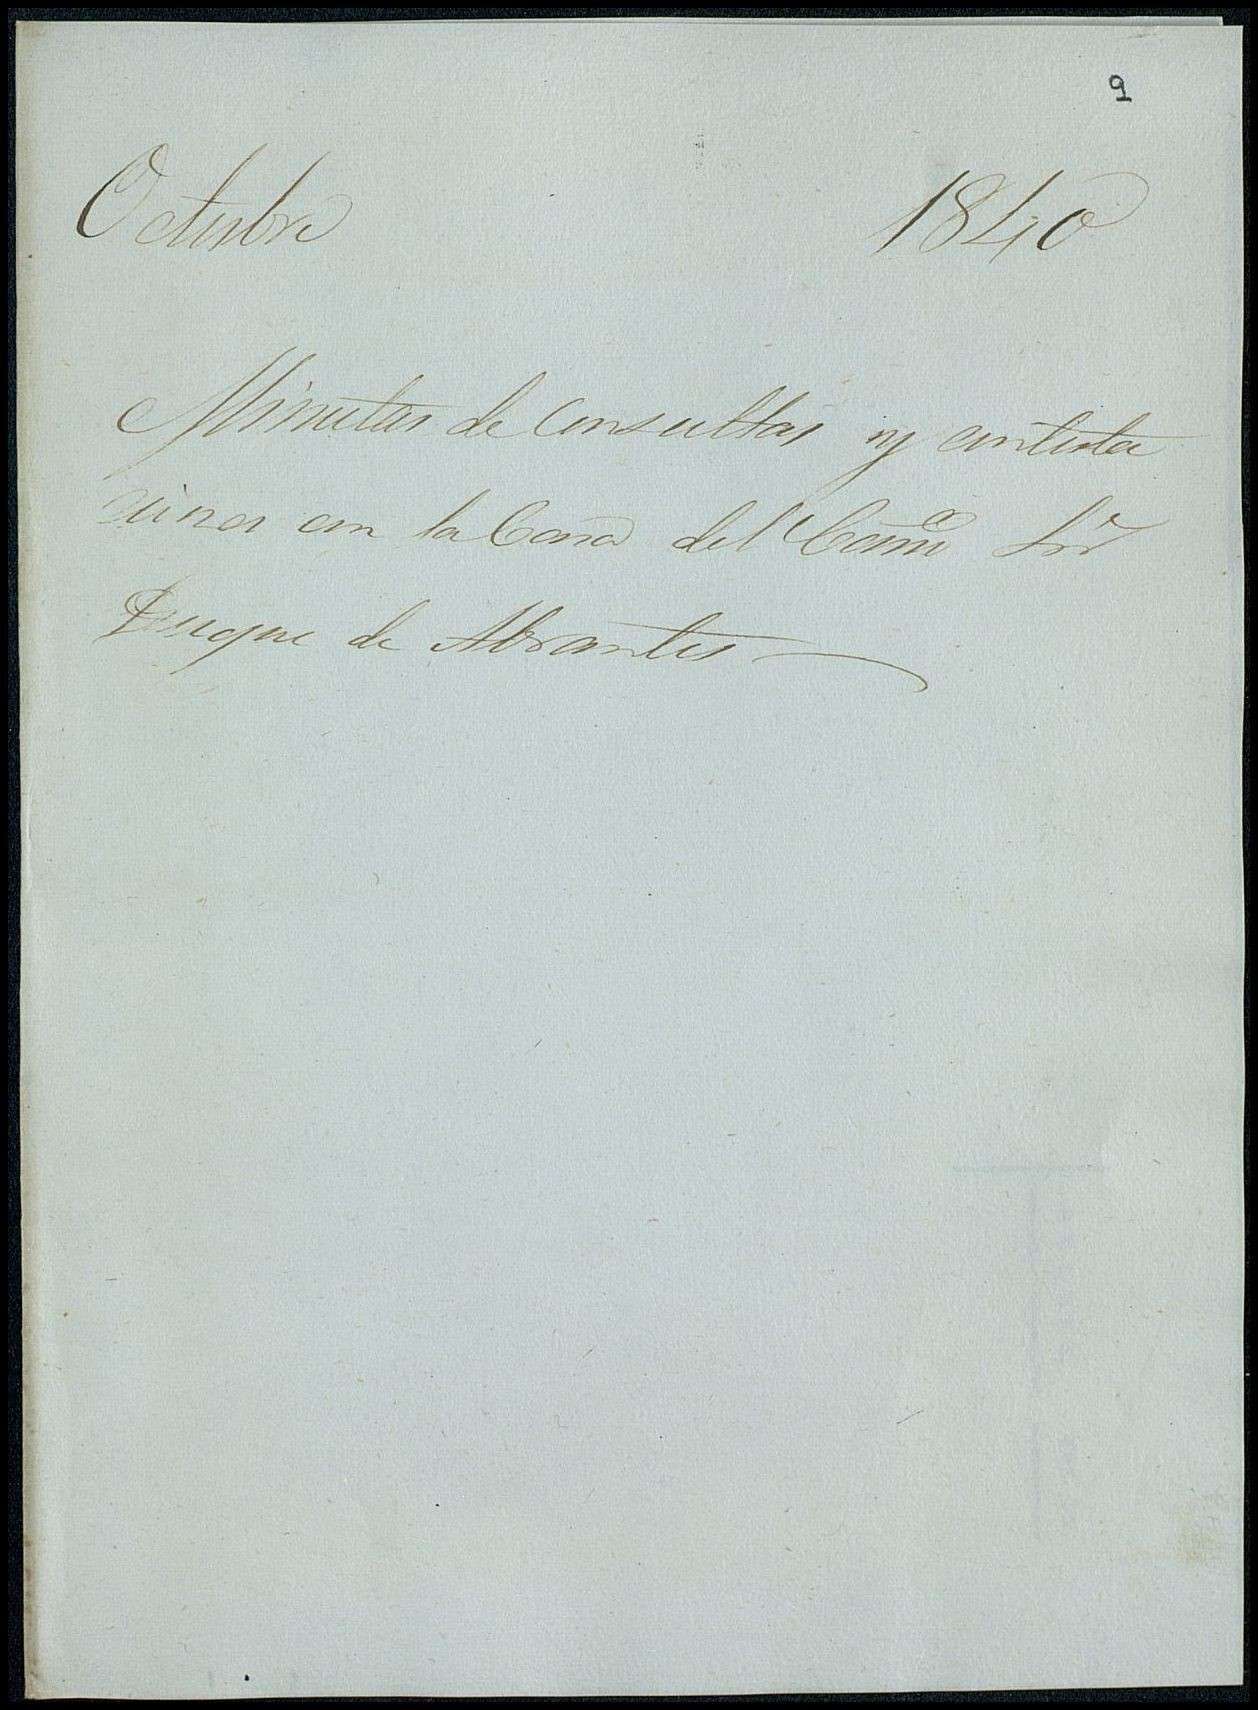 9
Octubre 1840
Minutas de Consultas y contesta
ciones con la Casa del Exmo Sor
Duque de Abrantes